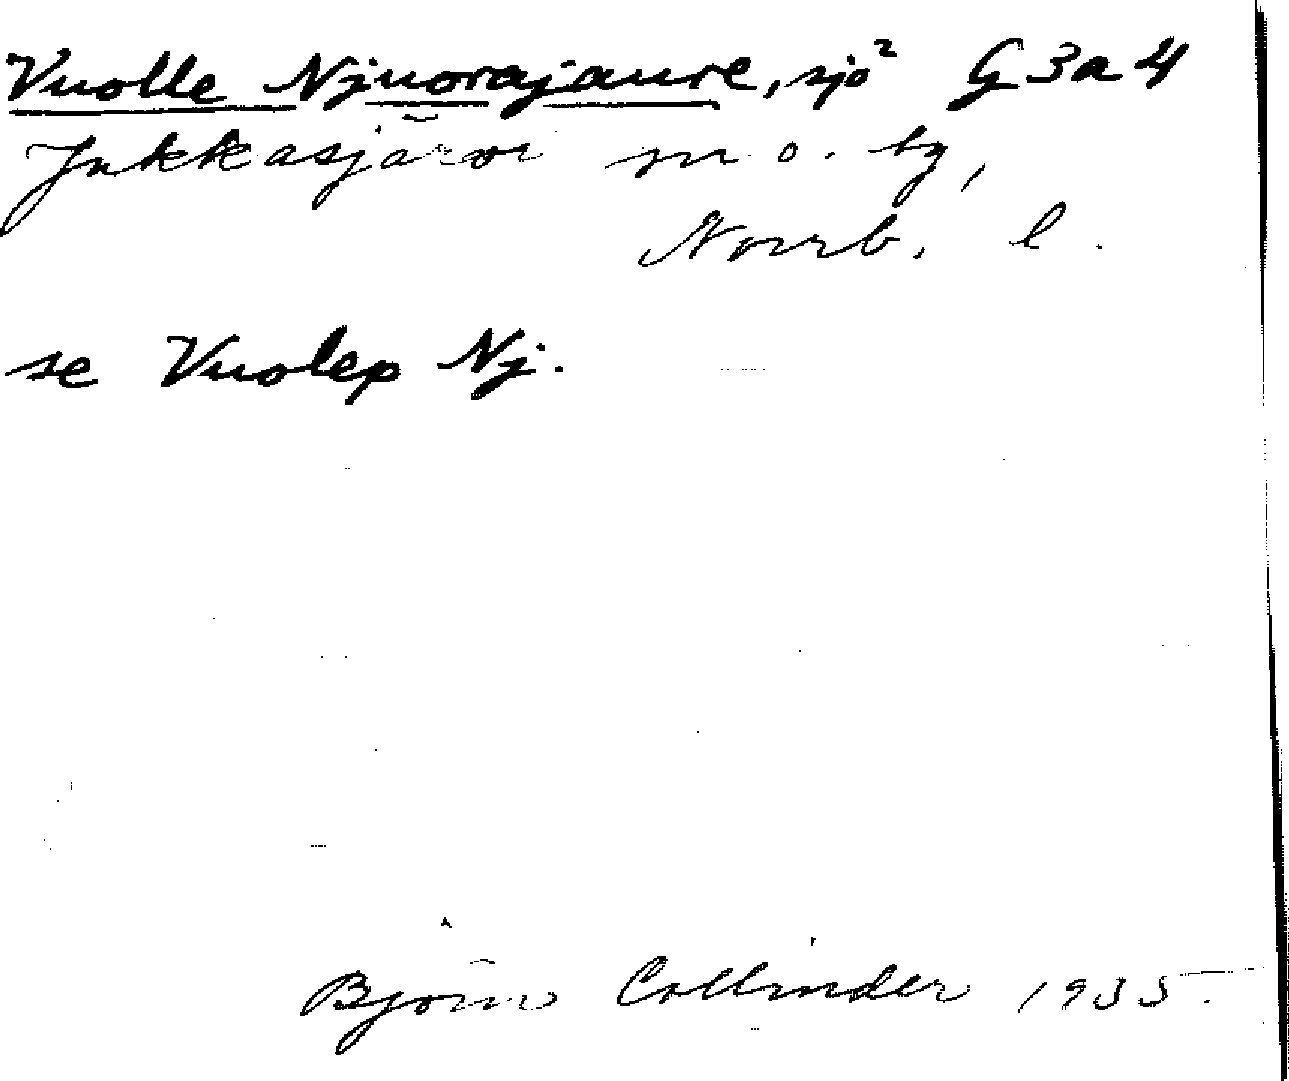 Vuolle Njuorajaure, sjö² G 3a 4
Jukkasjärvi sn o. tg,
Norrb. l.
se Vuolep Nj.
Björn Collinder 1935.